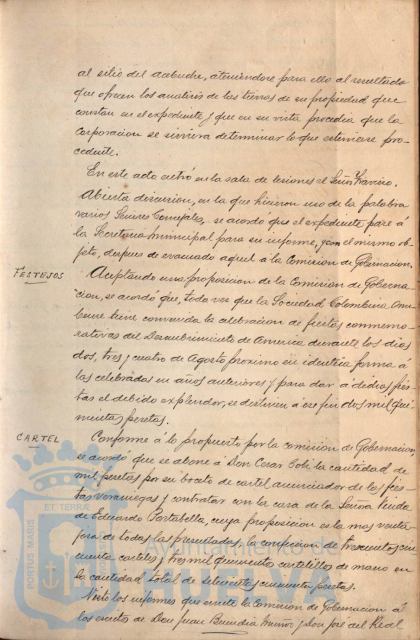 al sitio del , ateniéndose para ello al resultado
que ofrecen los analisis de las tierras de su propiedad que
constan en el expediente y que en su vista procedia que la
Corporacion se sirviera determinar lo que estimare pro-
cedente.
En este acto entró en la sala de sesiones el Señor
Abierta discusion, en la que hicieron uso de la palabra
varios Señores Concejales, se acordó que el expediente pase á
la Secretaria municipal para su informe, y con el mismo ob-
jeto, despues de evacuado aquel á la Comision de Gobernacion.
FESTEJOS
Aceptando una proposicion de la Comision de Goberna-
cion, se acordó que, toda vez que la Sociedad Colombina Onu-
bense tiene convenida la celebracion de fiestas conmemo-
rativas del Descubrimiento de America durante los dias
dos, tres y cuatro de Agosto proximo en identica forma á
las celebradas en años anteriores y para dar á dichas fies-
tas el debido explendor, se destinen á ese fin dos mil qui-
nientas pesetas.
CARTEL
Conforme á lo propuesto por la Comision de Gobernacion,
se acordó que se abone á Don Cesar la cantidad de
mil pesetas por su boceto de cartel anunciador de las fies-
tas veraniegas y contratar con la casa de la Señora Viuda
de Eduardo Portabella, cuya proposicion es la mas venta-
josa de todas las presentadas, la confeccion de trescientos cin-
cuenta carteles y tres mil quinientos cartelillos de mano en
la cantidad total de setecientas cincuenta pesetas.
Visto los informes que emite la Comision de Gobernacion á
los escritos de Don Juan Buendia Muñoz y Don José del Real
PORTUS MARIS
ET TERRÆ
Ayuntamiento de